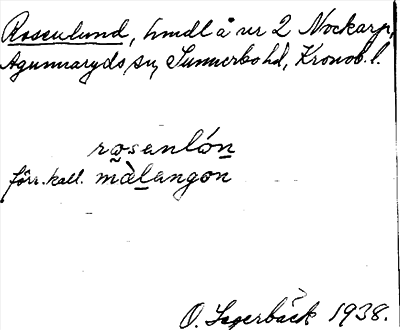 Rosenlund, hmdl å nr 2 Nockarp,
Agunnaryds sn, Sunnerbo hd, Kronob. l.
rosenlón
förr. kall. màlangon
O. Lagerbäck 1938.